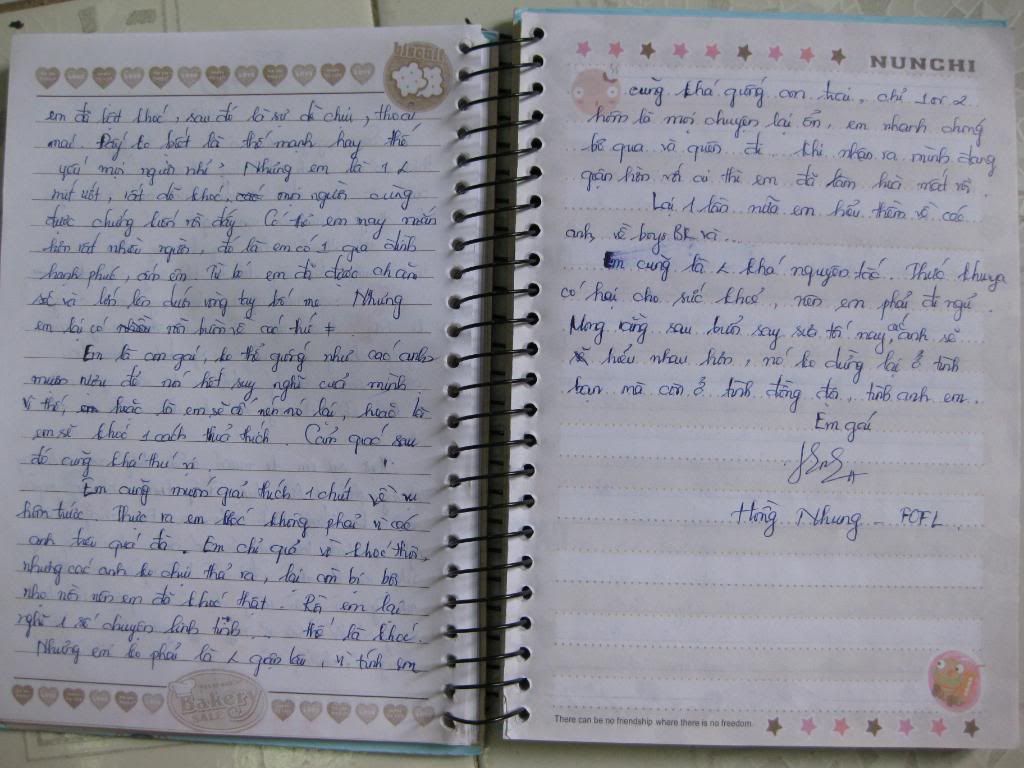 biscuit
em đã bật khóc, sau đó là sự dễ chịu, thoải
mái. Đấy ko biết là thế mạnh hay thế
yếu mọi người nhỉ? Nhưng em là 1
mít ướt, rất dễ khóc, mọi người cũng
được chứng kiến rồi đấy. Có lẽ em may mắn
hơn rất nhiều người, đó là em có 1 gia đình
hạnh phúc, êm ấm. Từ bé em đã được chăm
sóc và lớn lên dưới vòng tay bố mẹ. Nhưng
em lại có nỗi buồn về các thứ ≠
Em là con gái, ko thể giống như các anh
mượn rượu để nói hết suy nghĩ của mình
vì thế, hoặc là em sẽ cố nén nó lại, hoặc là
em sẽ khóc 1 cách thoả thích. Cảm giác sau
đó cũng khá thú vị.
Em cũng muốn giải thích 1 chút về vụ
hôm trước. Thực ra em khóc không phải vì các
anh trêu quá đà. Em chỉ giả vờ khóc thôi,
nhưng các anh ko chịu thả ra, lại còn bị bôi
nhọ nồi nên em đã khóc thật. Rồi em lại
nghĩ 1 số chuyện linh tinh ... thế là khóc.
Nhưng em ko phải là giận lâu, vì tính em
Bakery
NUNCHI
cũng khá giống con trai, chỉ 1 or 2
hôm là mọi chuyện lại ổn, em nhanh chóng
bỏ qua và quên đi khi nhận ra mình đang
giận hờn với ai thì em đã làm hoà mất rồi.
Lại 1 lần nữa em hiểu thêm về các
anh, về boys BK và...
Em cũng là khá nguyên tắc. Thức khuya
có hại cho sức khoẻ, nên em phải đi ngủ.
Mong rằng sau buổi say sưa tối nay, các anh sẽ
hiểu nhau hơn, nó ko dừng lại ở tình
bạn mà còn ở tình đồng đội, tình anh em.
Em gái
Hồng Nhung - FCFL
There can be no friendship where there is no freedom.